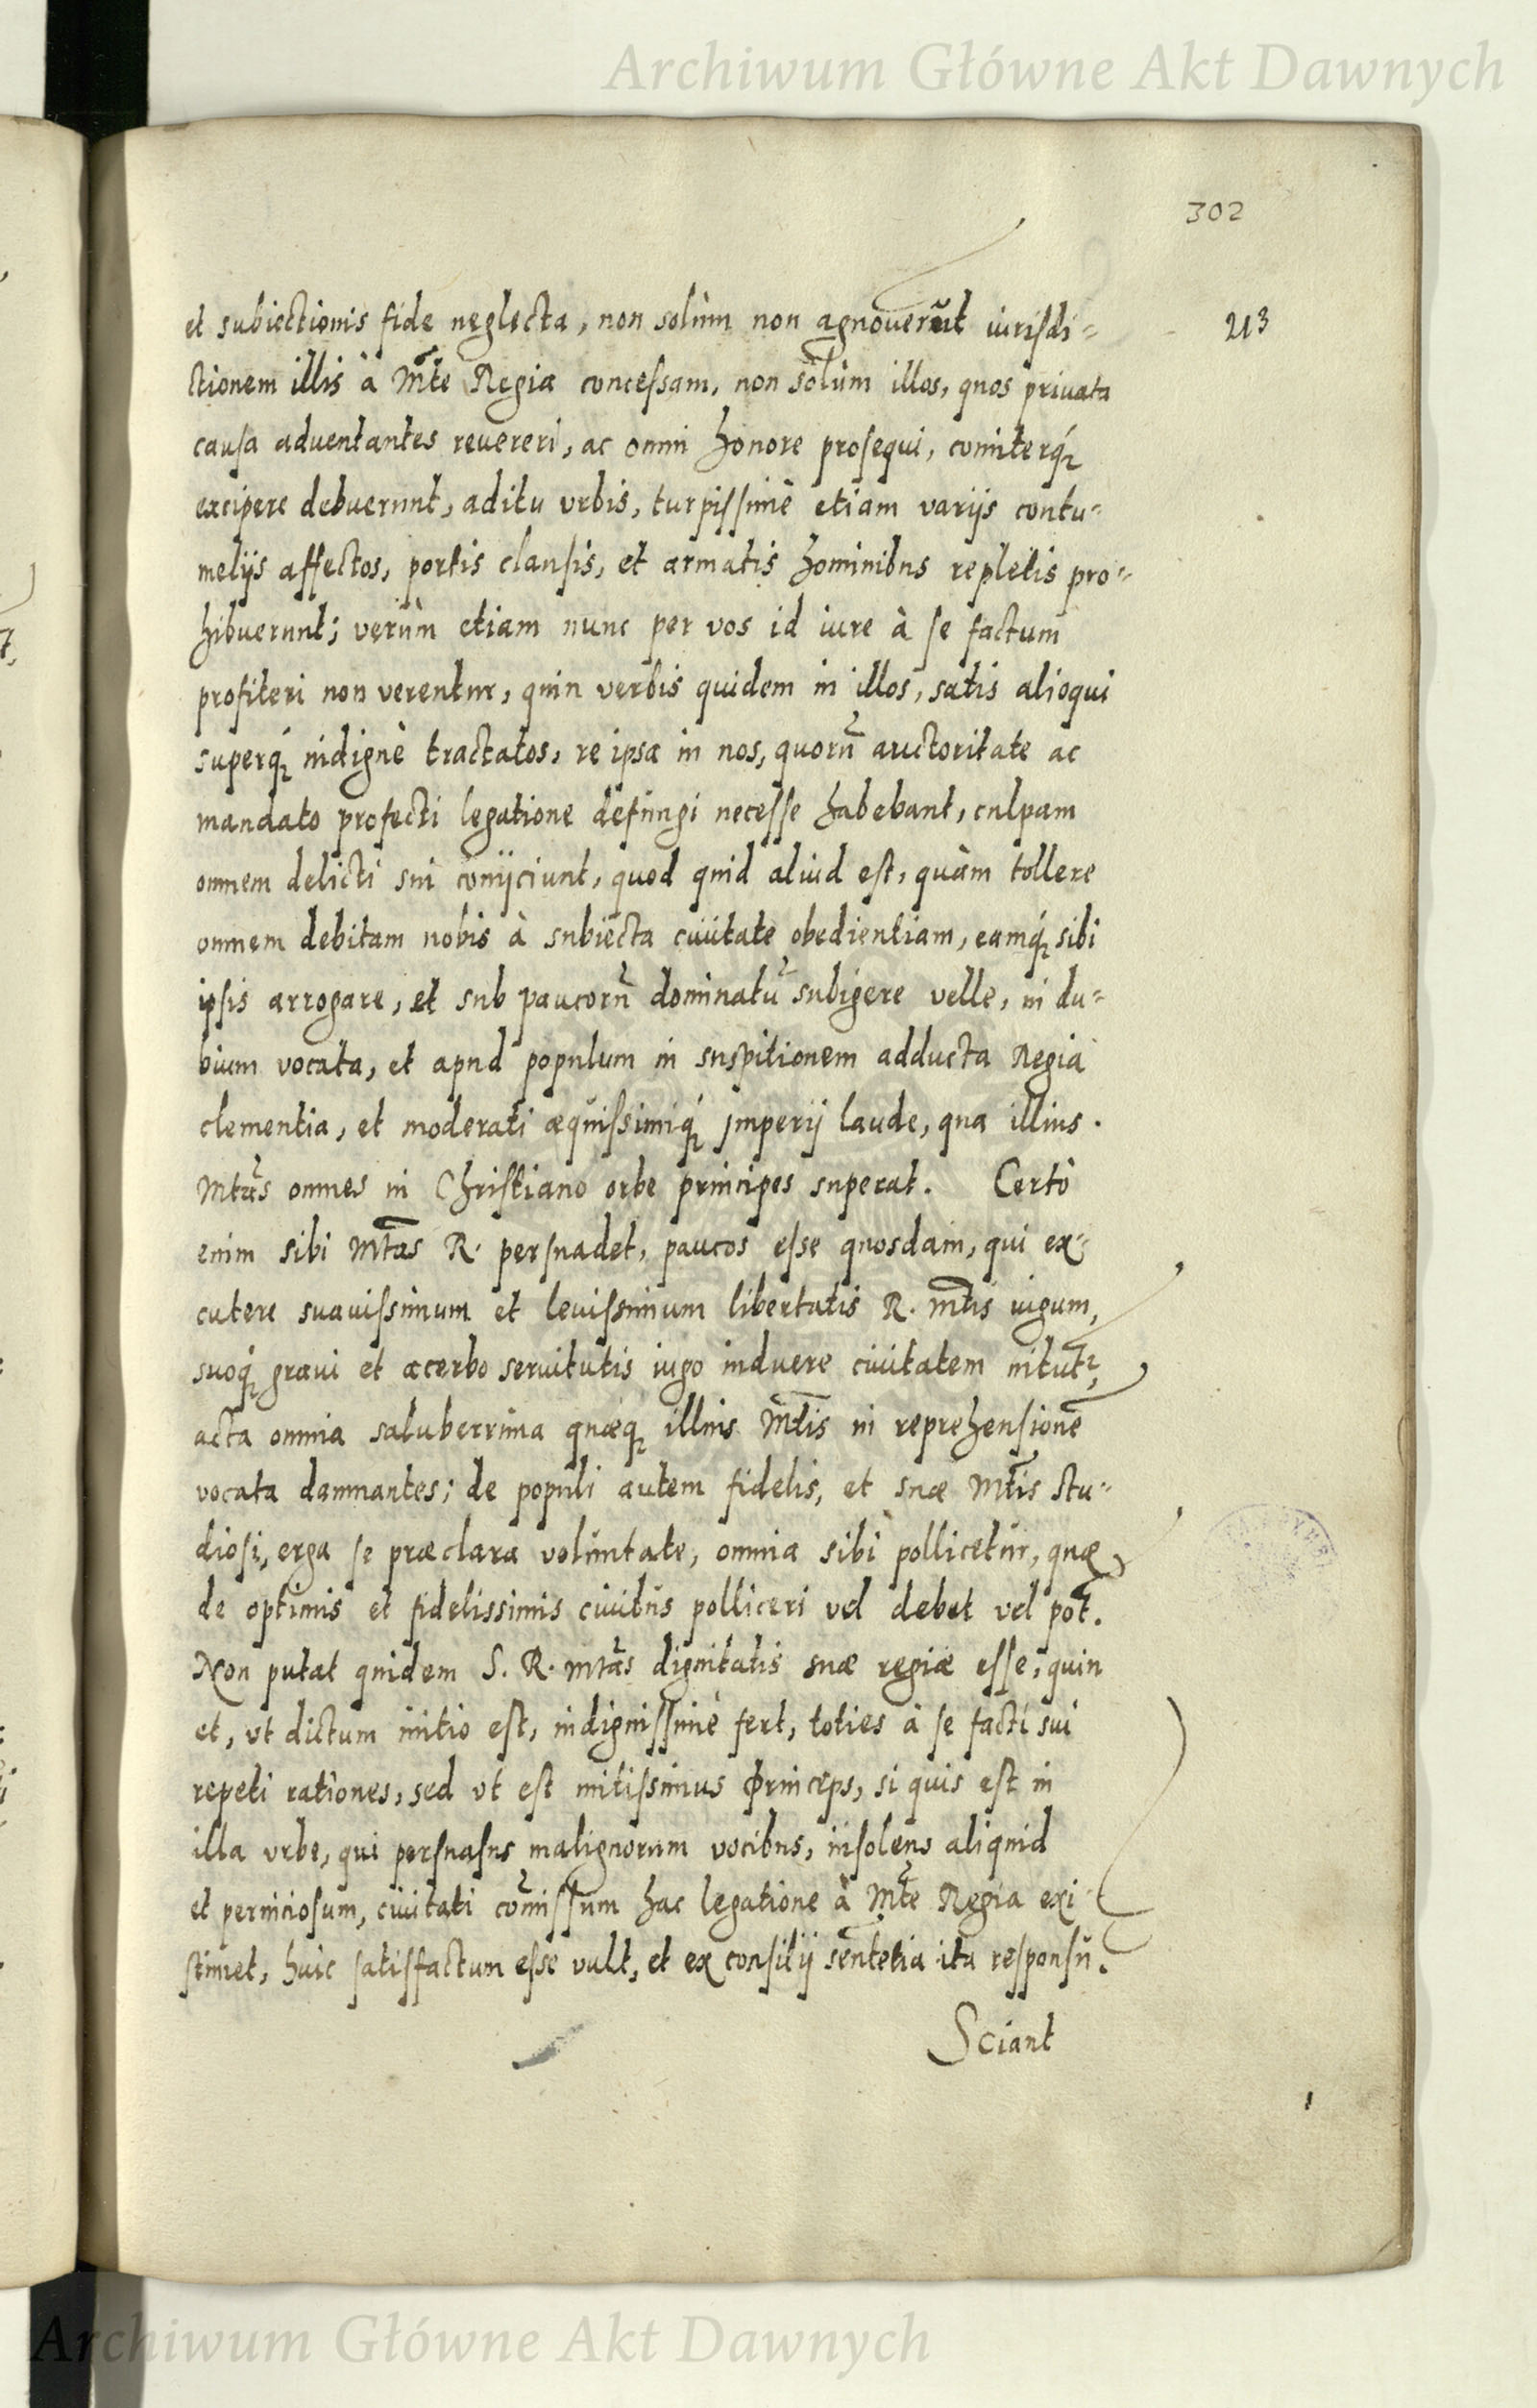 Archiwum Główne Akt Dawnych
302
213
et subiectionis fide neglecta, non solùm non agnoverũt iurisdi=
ctionem illis à Mt̃e Regia concessam, non solùm illos, quos privata
causa adventantes revereri, ac omni honore prosequi, comiterq́
excipere debuerunt, aditu vrbis, turpissimè etiam varijs contu=
melijs affectos, portis clausis, et armatis hominibus repletis pro=
hibuerunt; verùm etiam nunc per vos id iure à se factum
profiteri non verentur, quin verbis quidem in illos, satis alioqui
superq́ indignè tractatos, re ipsa in nos, quorũ auctoritate ac
mandato profecti legatione defungi necesse habebant, culpam
omnem delicti sui conijciunt, quod quid aliud est, quàm tollere
omnem debitam nobis à subiecta civitate obedientiam, eamq́ sibi
ipsis arrogare, et sub paucorũ dominatũ subigere velle, in du=
bium vocata, et apud populum in suspitionem adducta Regia
clementia, et moderati æquissimiq́ jmperij laude, qua illius.
Mtãs omnes in Christiano orbe principes superat. Certò
enim sibi Mtãs R. persuadet, paucos esse quosdam, qui ex=
cutere suavissimum et levissimum libertatis R. Mt̃is iugum,
suoq́ gravi et acerbo servitutis iugo induere civitatem nitũt,
acta omnia saluberrima quæq́ illius Mt̃is in reprehensionẽ
vocata damnantes; de populi autem fidelis, et suæ Mt̃is stu=
diosi, erga se præclara voluntate, omnia sibi pollicetur, quæ
de optimis et fidelissimis civibus polliceri vel debet vel pot̃.
Non putat quidem S. R. Mtãs dignitatis suæ regiæ esse, quin
et, vt dictum initio est, indignissimè fert, toties à se facti sui
repeti rationes, sed vt est mitissimus Princeps, si quis est in
illa vrbe, qui persuasus malignorum vocibus, insolens aliquid
et perniciosum, civitati com̃issum hac legatione à Mt̃e Regia exi=
stimet, huic satisfactum esse vult, et ex consilij sentẽtia ita responsũ.
Sciant
Archiwum Główne Akt Dawnych